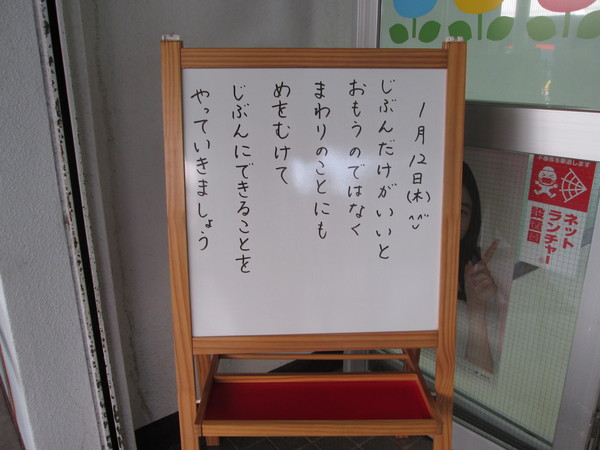 1月12日(木)^^
じぶんだけがいいと
おもうのではなく
まわりのことにも
めをむけて
じぶんにできることを
やっていきましょう
ネット
ランチャー
設置園